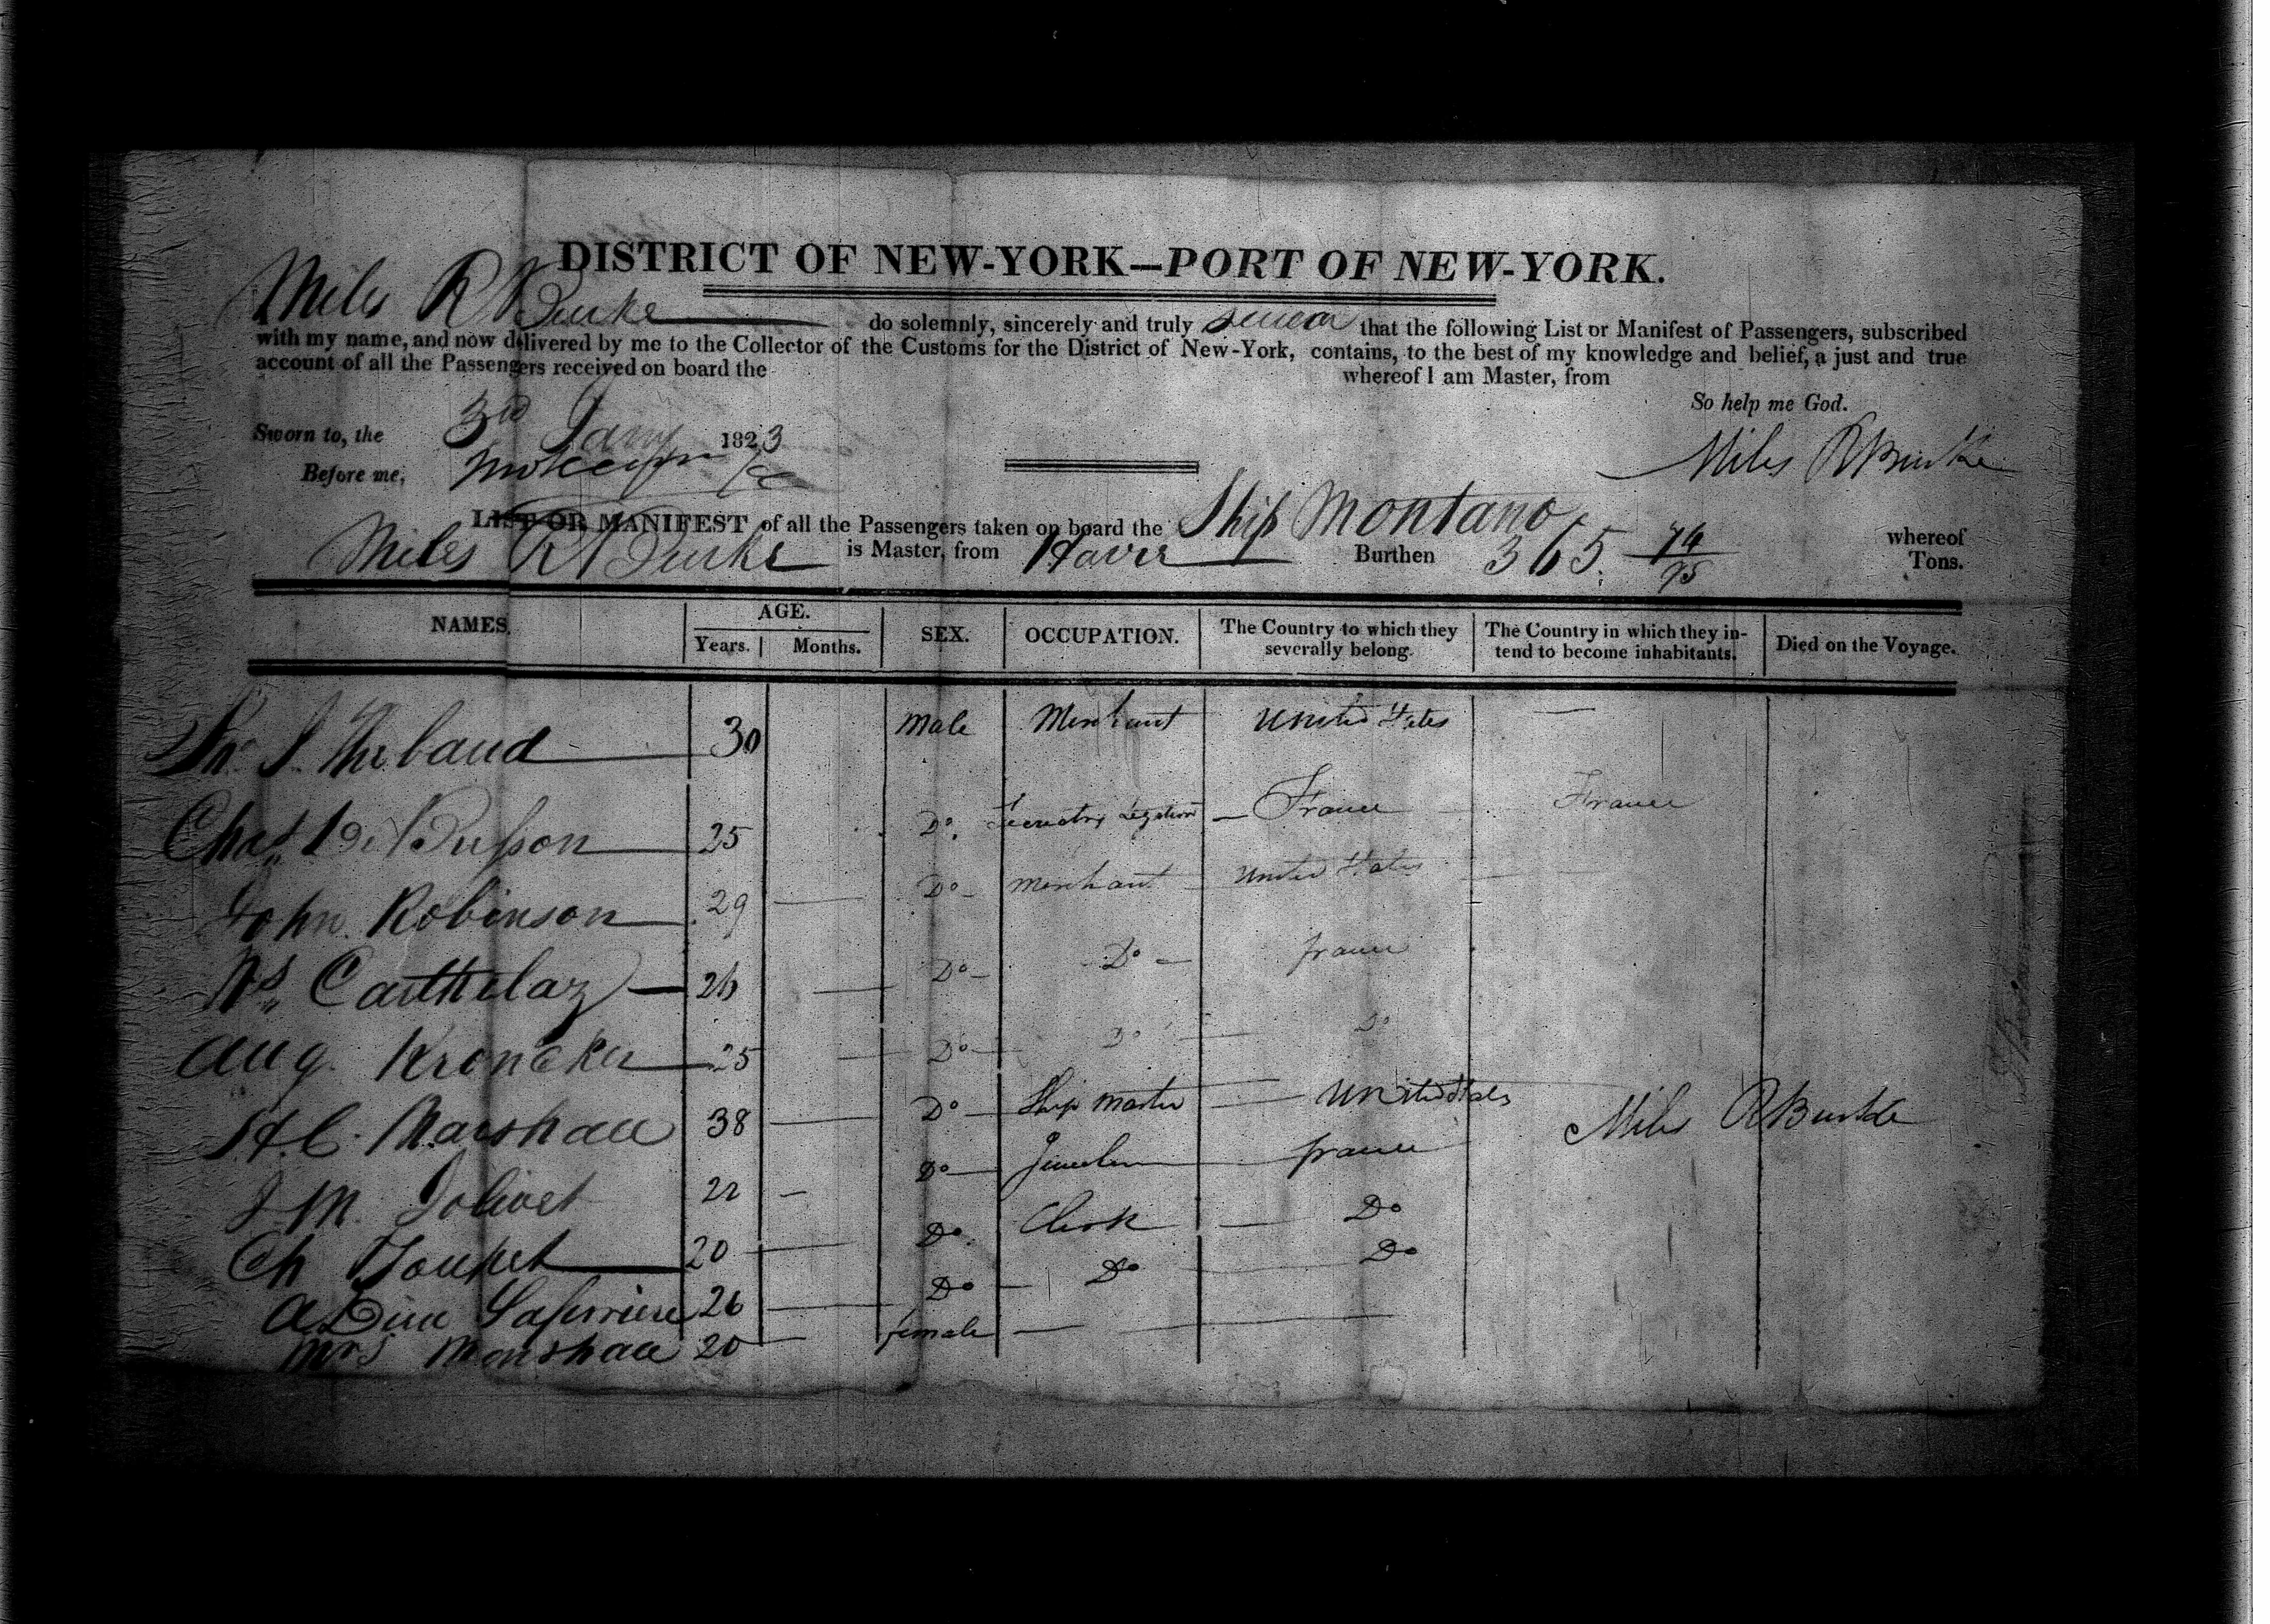 DISTRICT OF NEW-YORK—PORT OF NEW-YORK.
Miles R Burke do solemnly, sincerely and truly swear that the following List or Manifest of Passengers, subscribed
with my name, and now delivered by me to the Collector of the Customs for the District of New-York, contains, to the best of my knowledge and belief, a just and true
account of all the Passengers received on board the whereof I am Master, from
So help me God.
Sworn to, the 3rd Jany 1823
Miles R Burke
Before me,
LIST OR MANIFEST of all the Passengers taken on board the Ship Montano whereof
Miles R Burke is Master, from Havre Burthen 365. 74/95 Tons.
NAMES. AGE. Years. Months. SEX. OCCUPATION. The Country to which they severally belong. The Country in which they intend to become inhabitants. Died on the Voyage.
Thebaud 30 Male Merchant United States —
Chas 25 Do. Secretary Legation — France France
John Robinson 29 — Do — Merchant — United States
Ns Carthelaz — 26 — Do — Do — france
Aug. Kroncker 25 — Do — Do — Do
H.C. Marshall 38 — Do — Ship master — United States
J M. Jolivet 22 — Do — Jeweler — france
Miles R Burke
Ch Toupet 20 — Do. Clerk — Do
Laferriere 26 — Do — Do — Do
Mrs Marshall 20 — female —